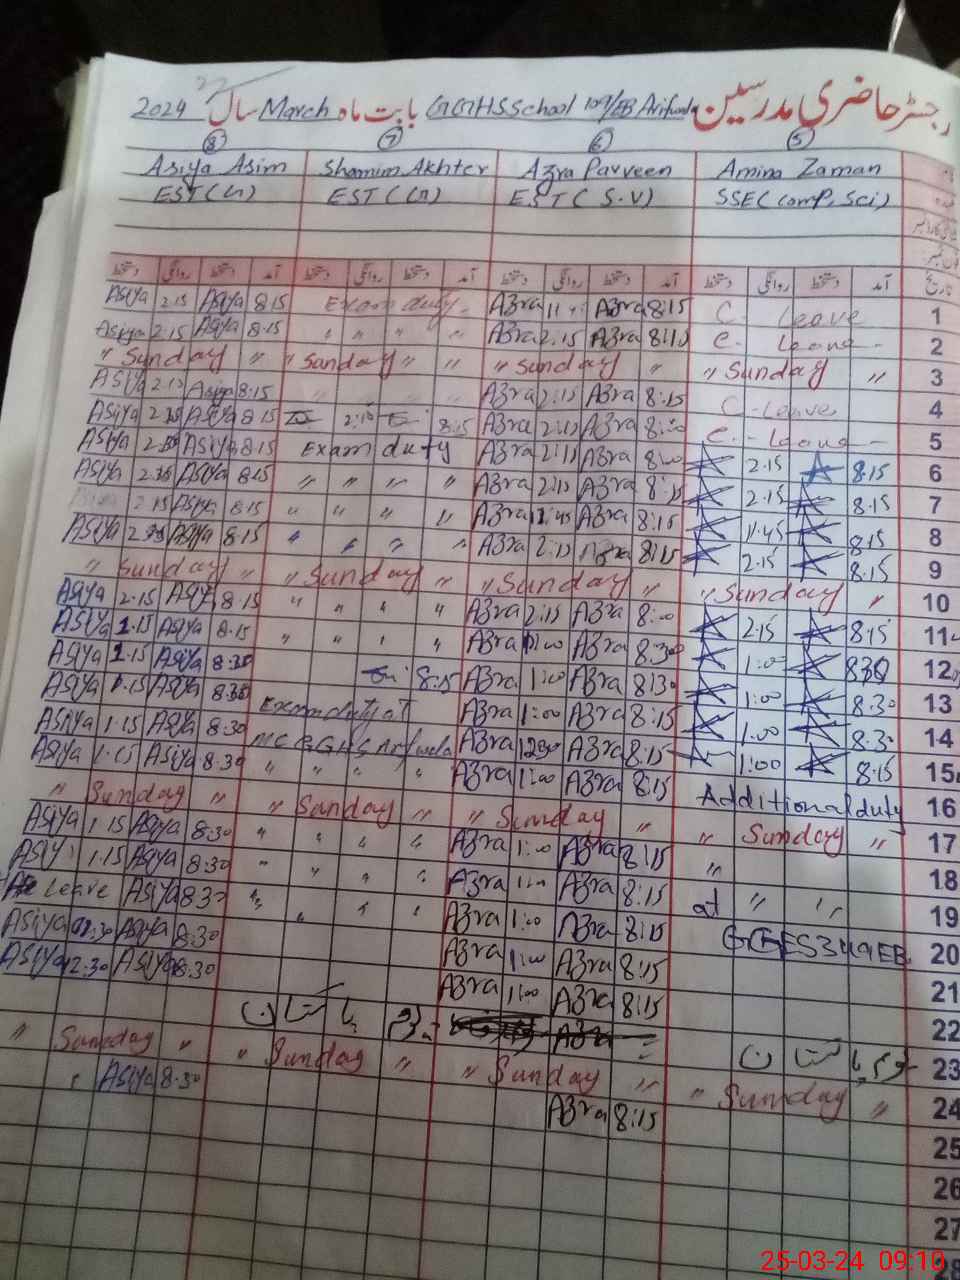 رجسٹر حاضری مدرسین GGHSSchool 109/EB Arifwala بابت ماہ March سال 2024
8 7 6 5
Asiya Asim Shamim Akhter Azra Parveen Amina Zaman
EST(U) EST(U) EST(S.V) SSE(Comp, Sci)
دستخط روانگی دستخط آمد دستخط روانگی دستخط آمد دستخط روانگی دستخط آمد دستخط روانگی دستخط آمد تاریخ
Asiya 2.15 Asiya 8.15 Exam duty Azra Azra 8:15 C. Leave 1
Asiya 2.15 Asiya 8.15 " " " " Azra 2.15 Azra 8:15 C. Leave 2
" Sunday " " Sunday " " " Sunday " " Sunday " 3
Asiya 2.15 Asiya 8.15 Azra 2:15 Azra 8:15 C-Leave 4
Asiya Asiya 8.15 2:15 8:15 Azra 2:15 Azra C.-Leave- 5
Asiya Asiya 8.15 Exam duty Azra 2:15 Azra 8:00 2.15 8.15 6
Asiya Asiya 8.15 " " " " Azra 2:15 Azra 8:15 2.15 8.15 7
2.15 Asiya 8.15 " " " " Azra 12:45 Azra 8:15 1.45 8.15 8
Asiya Asiya 8.15 " " " " Azra 2:15 Azra 8:15 2.15 8.15 9
" Sunday " " Sunday " " Sunday " " Sunday " 10
Asiya 2.15 Asiya 8.15 " " " " Azra 2:15 Azra 8:00 2.15 8.15 11
Asiya 1.15 Asiya 8.15 " " " " Azra Azra 8:30 1:00 830 12
Asiya 1.15 Asiya 8.30 8:15 Azra 1:00 Azra 8:30 1:00 8.30 13
Asiya 1.15 Asiya 8.30 Exam duty at Azra 1:00 Azra 8:15 1.00 8.30 14
Asiya 1.15 Asiya 8.30 MC GGHS Arifwala Azra 1230 Azra 8:15 1:00 8.15 15
Asiya 1.15 Asiya 8.30 " " " " Azra 1:00 Azra 8:15 Additional duty 16
" Sunday " " Sunday " " " Sunday " " Sunday " 17
Asiya 1.15 Asiya 8.30 " " " " Azra 1:00 Azra 8:15 " 18
Asiya 1.15 Asiya 8.30 " " " " Azra 1:00 Azra 8:15 at " " 19
Leave Asiya 8.30 " " " " Azra 1:00 Azra 8:15 GGES349EB 20
Asiya 12.30 Asiya 8.30 Azra 1:00 Azra 8:15 21
Asiya 12.30 Asiya 8.30 Azra 1:00 Azra 8:15 22
یوم پاکستان Azra یوم پاکستان 23
" Sunday " " Sunday " " Sunday " " Sunday " 24
Asiya 8.30 Azra 8:15 25
26
27
28
25-03-24 09:10